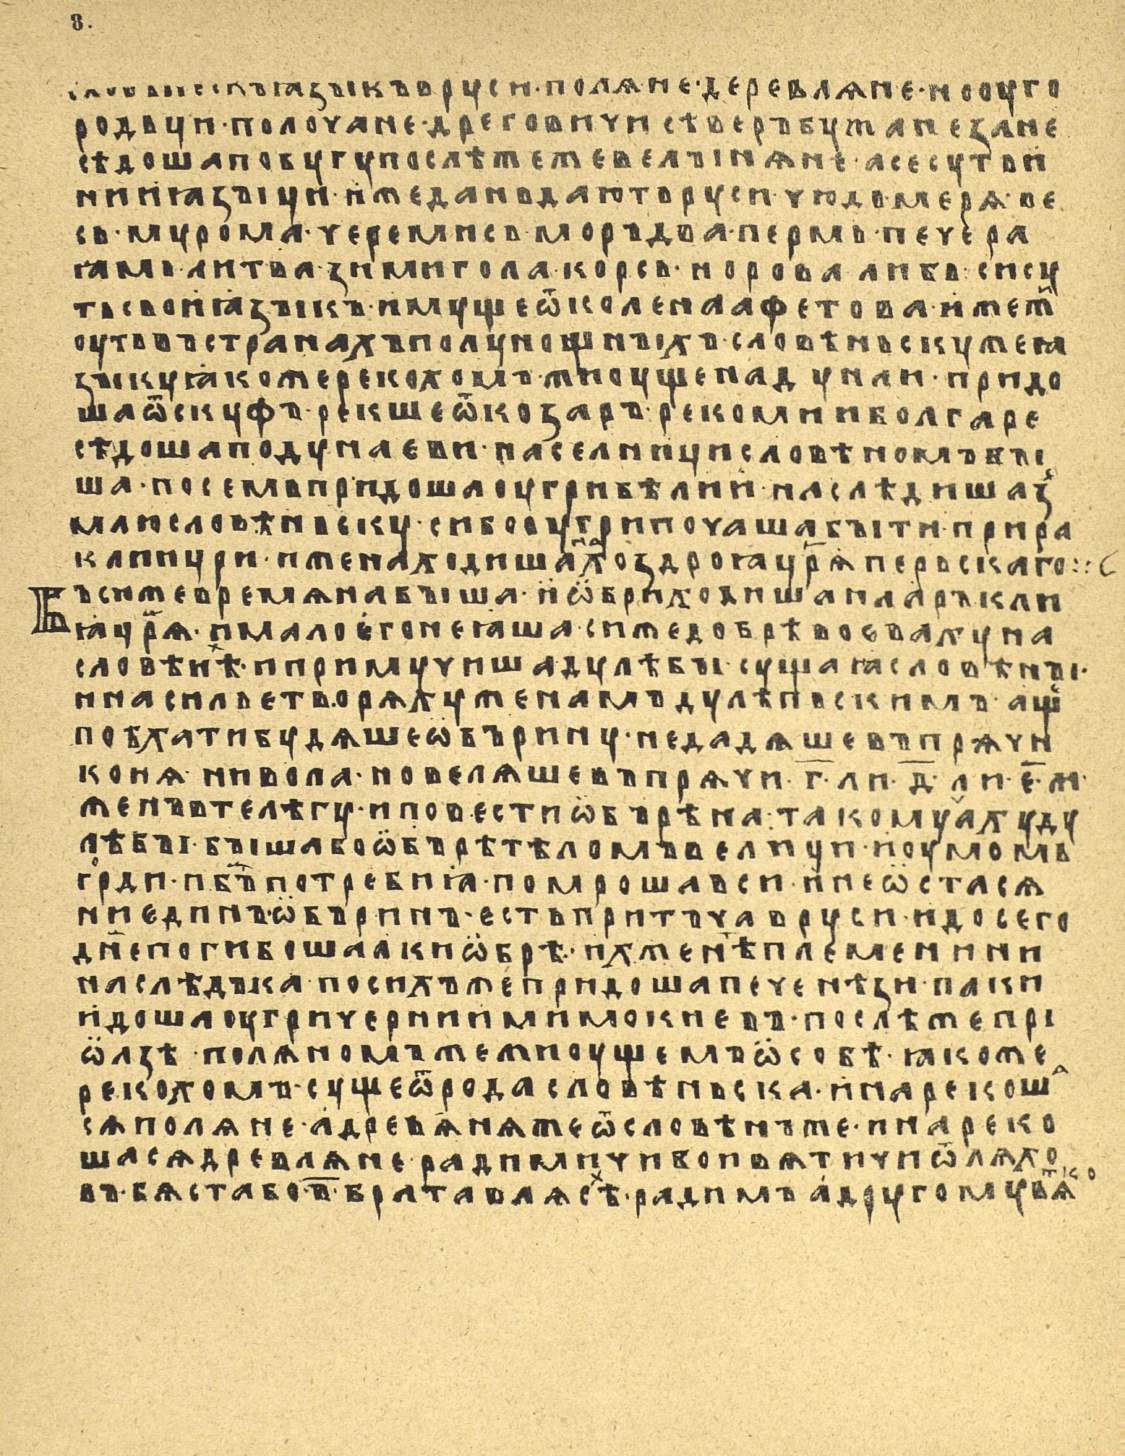 8.
словенескъ ꙗзыкъ в руси · полѧне · деревлѧне · нооуго
родьци · полочане · дреговичи сѣверъ бужане зане
сѣдоша по бугу послѣже же велынѧне · а се суть ѝ
нии ꙗзыци · иже дань дають руси чюдь · мерѧ · ве
сь · мурома · черемись моръдва · пермь · печера
ꙗмь литва · зимигола · корсь · норова либь · си су
ть свои ꙗзыкъ · имуще ѿ колена афетова · иже
оуть въ странахъ полунощныхъ · словѣньску же ꙗ
зыку ꙗкоже рекохомъ · жиоуще на дунаи · придо
ша ѿ скуфъ · рекше ѿ козаръ · рекоми и болгаре
сѣдоша по дунаеви · насельници словѣномъ бы
ша · посемь придоша оугри бѣлии · наслѣдиша з
млю словѣньску · си бо оугри почаша быти · при ра
клии цри · иже находиша х на хоздроꙗ црѧ перьскаго
Въ си же времѧна быша · и ѡбри ходиша на аръкли
ꙗ црѧ · и мало его не ꙗша · си же добрѣ воеваху на
словѣнѣх · и примучиша дулѣбы · сущаꙗ словѣны ·
и насилье творѧху женамъ дулѣпьскимъ · ащ
поѣхати будѧше ѡбърину · не дадѧше въпрѧчи
конѧ · ни вола · но велѧше въпрѧчи · г · ли · д · ли · е · ж
женъ в телѣгу · и повести ѡбърѣна · тако мучаху ду
лѣбы · быша бо ѡбърѣ тѣломъ велици · и оумомь
горди · и бъ потреби ꙗ · помроша вси · и не ѡстасѧ
ни единъ ѡбъринъ · есть притъча в руси · и до сего
дне погибоша аки ѡбрѣ · ихже нѣ племени ни
наслѣдъка · по сихъ же придоша печенѣзи · паки
идоша оугри чернии мимо киевъ · послѣже прі
ѡлзѣ · полѧномъ же жиоущемъ ѡ собѣ · ꙗкоже
рекохомъ · суще ѿ рода словѣньска · и нарекош
сѧ полѧне · а древѧнѧ же ѿ словѣнъ же · и нареко
шасѧ древлѧне · радимичи бо и вѧтичи ѿ лѧхо
въ · бѧста бо · в · брата в лѧсѣх · радимъ а другому вѧтко